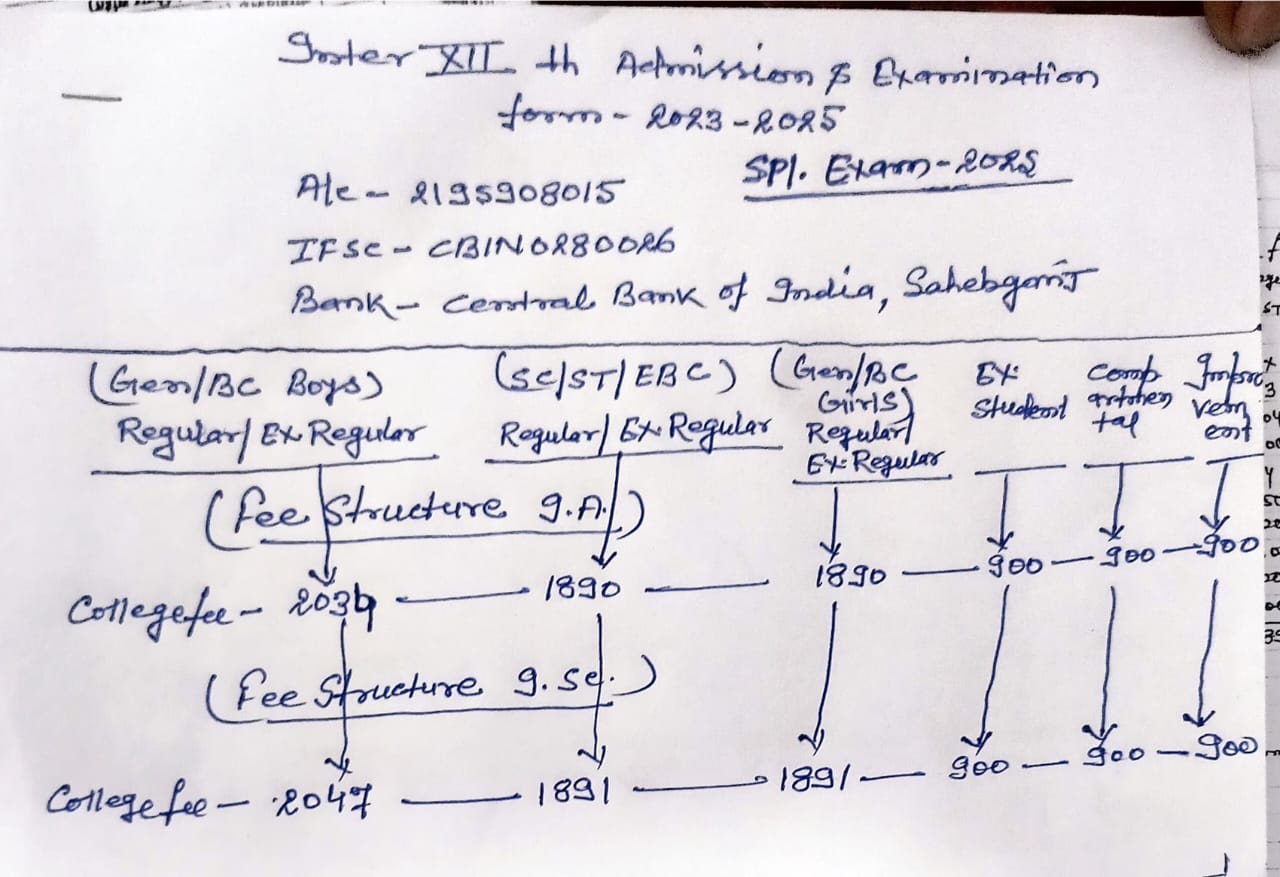 Inter XII th Admission & Examination
form - 2023-2025
Spl. Exam-2025
A/c - 2195908015
IFSC - CBIN0280026
Bank - Central Bank of India, Sahebganj
(Gen/BC Boys) (SC/ST/EBC) (Gen/BC Girls) Ex Student Compartmental Improvement
Regular/Ex Regular Regular/Ex Regular Regular/ Ex-Regular
(Fee Structure I.A.)
College fee - 2034 1890 1890 900 900 900
(Fee Structure I.Sc.)
College fee - 2047 1891 1891 900 900 900